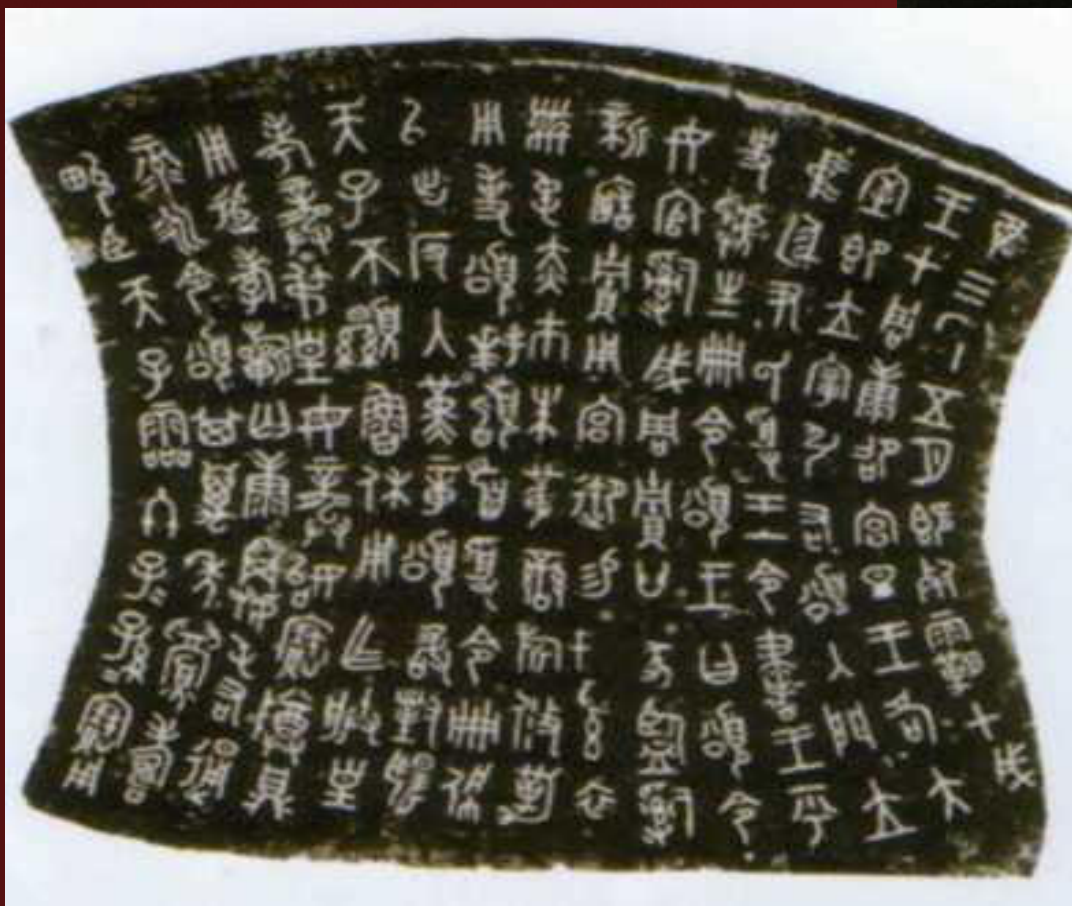 隹三年五月既死霸甲戌
王才周康卲宮旦王各大
室即立宰引右頌入門立
中廷尹氏受王令書王乎
史虢生冊令頌王曰頌令
女官𤔲成周賈廿家監𤔲
新造賈用宮御易女玄衣
黹屯赤市朱黃䜌旂攸勒
用事頌拜𩒨首受令冊佩
以出反入堇章頌敢對揚
天子不顯魯休用乍朕皇
考龏弔皇母龏姒寶尊鼎
用追孝祈匄康𠽙屯右通
彔永令頌其萬年眉壽
畯臣天子霝冬子=孫=寶用